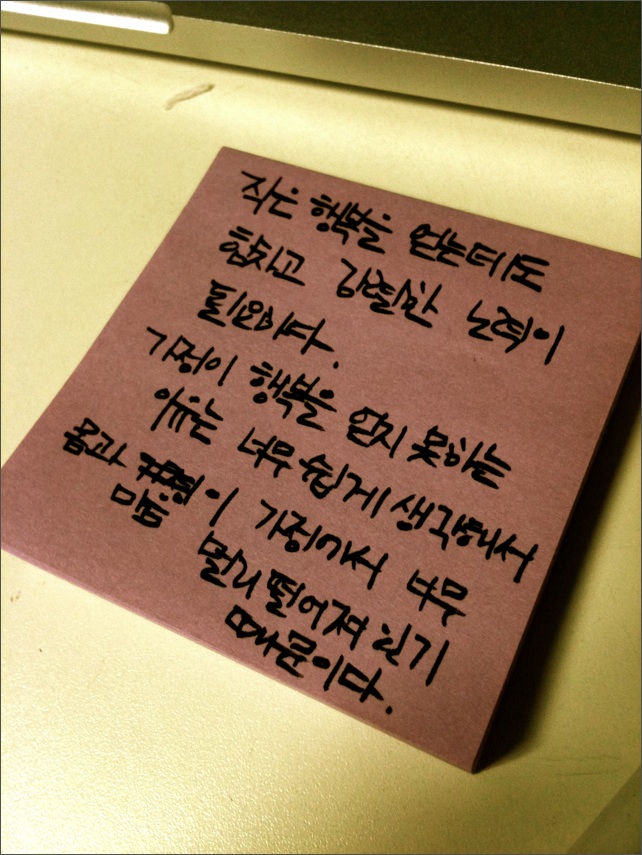 작은 행복을 얻는데도
힘차고 강렬한 노력이
필요하다.
가정이 행복을 얻지 못하는
이유는 너무 쉽게 생각해서
몸과 이 가정에서 너무
맘
멀리 떨어져 있기
때문이다.